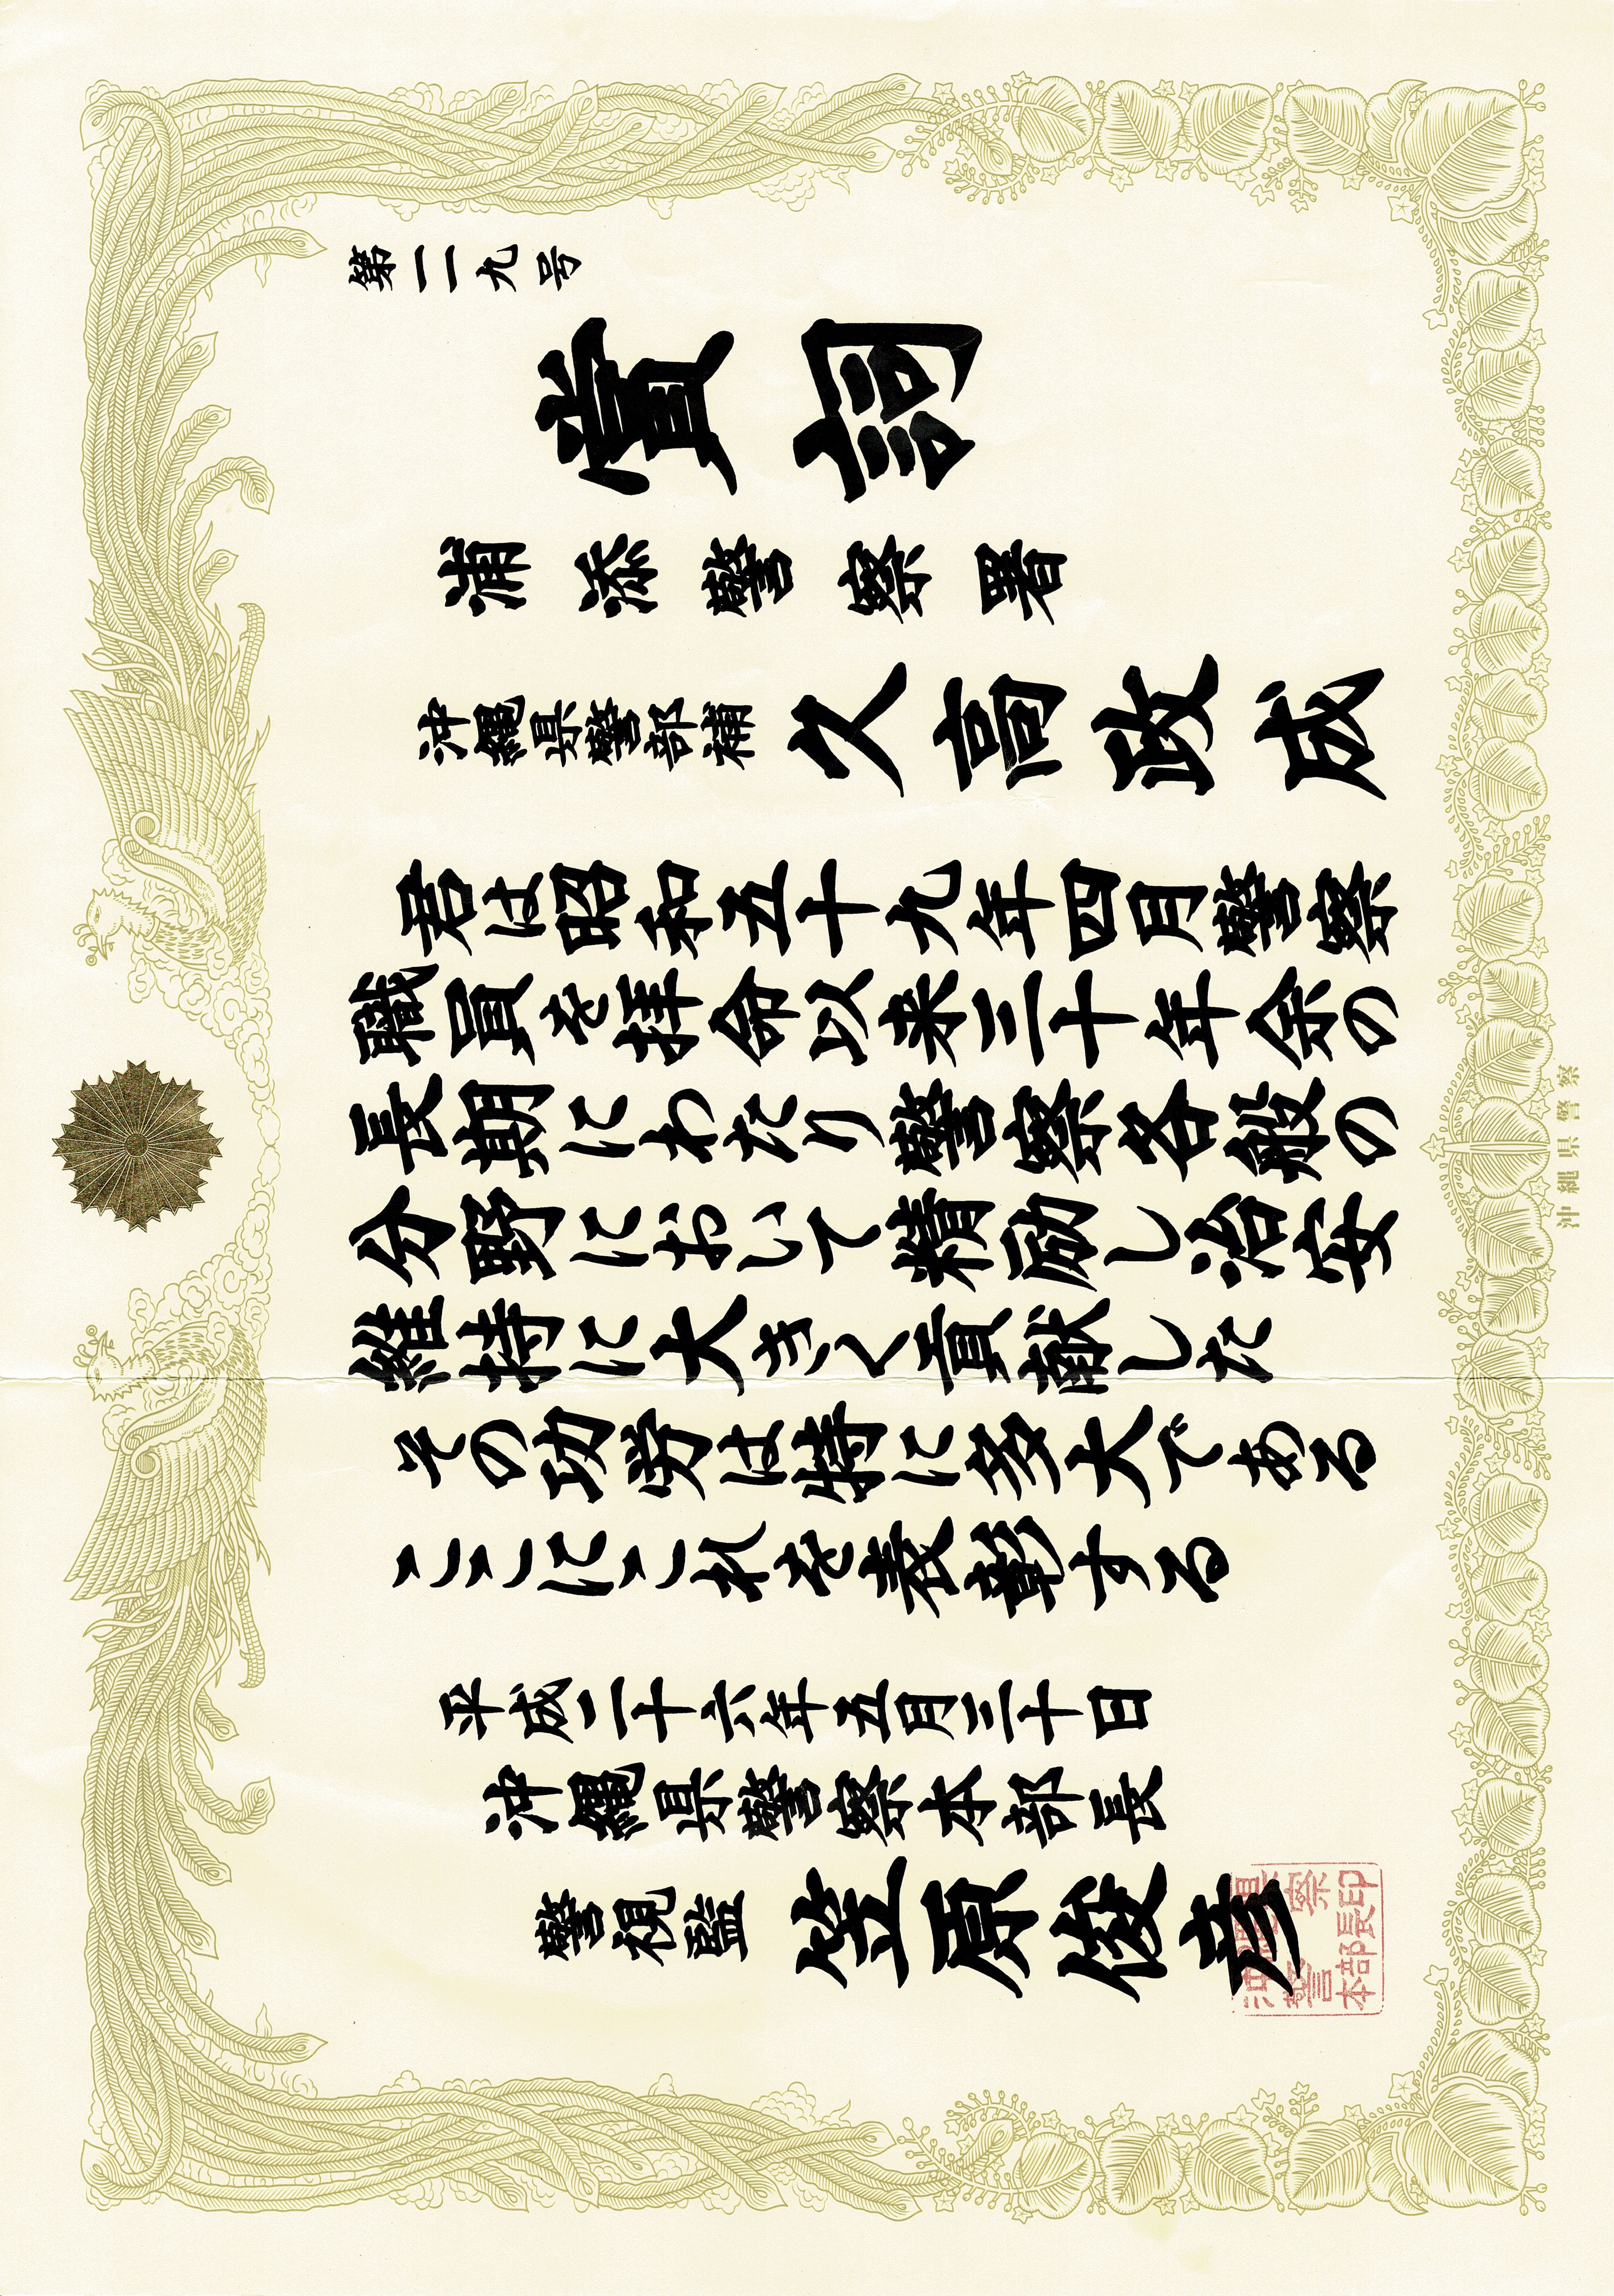 第一一九号
賞詞
浦添警察署
沖縄県警部補 久高政成
君は昭和五十九年四月警察
職員を拝命以来三十年余の
長期にわたり警察各般の
分野において精励し治安
維持に大きく貢献した
その功労は特に多大である
ここにこれを表彰する
平成二十六年五月三十日
沖縄県警察本部長
警視監 笠原俊彦
沖縄県
警察
本部長印
沖縄県警察